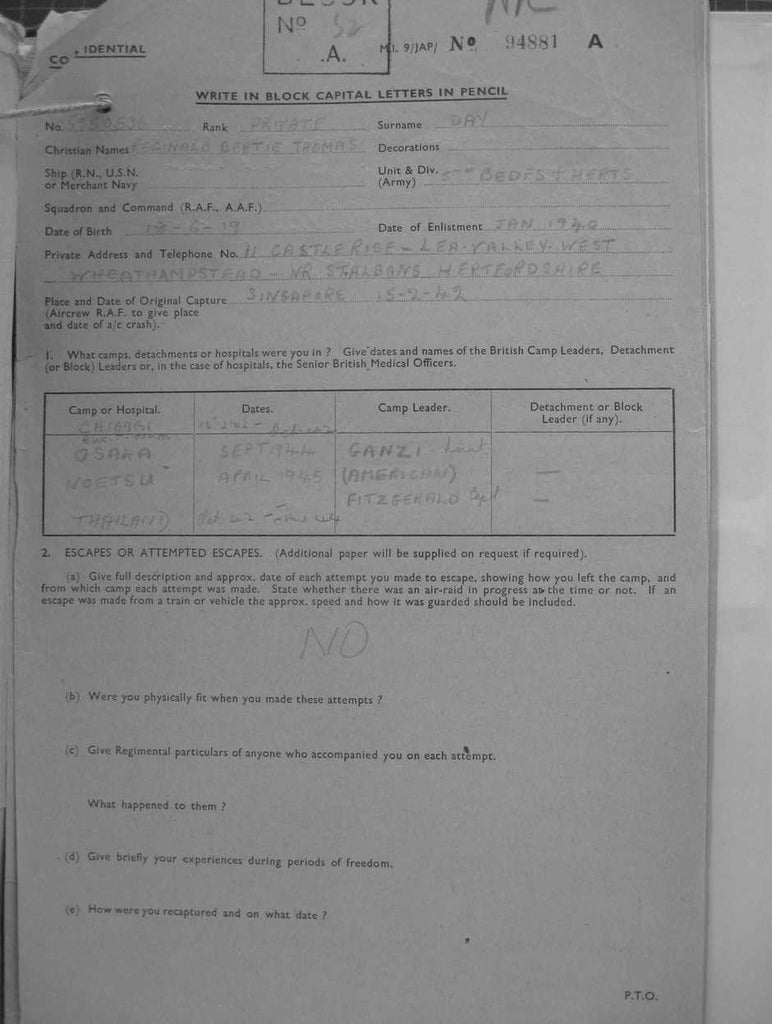 No
A.
CO IDENTIAL
M.I. 9/JAP/ No 94881 A
WRITE IN BLOCK CAPITAL LETTERS IN PENCIL
No. Rank PRIVATE Surname DAY
Christian Names REGINALD BERTIE THOMAS Decorations
Ship (R.N., U.S.N. or Merchant Navy Unit & Div. (Army) 5TH BEDFS & HERTS
Squadron and Command (R.A.F., A.A.F.)
Date of Birth 18-6-19 Date of Enlistment JAN 1940
Private Address and Telephone No. 11 CASTLE RISE - LEA-VALLEY-WEST
WHEATHAMPSTEAD - NR ST ALBANS HERTFORDSHIRE
Place and Date of Original Capture SINGAPORE 15-2-42
(Aircrew R.A.F. to give place
and date of a/c crash).
1. What camps, detachments or hospitals were you in ? Give dates and names of the British Camp Leaders, Detachment
(or Block) Leaders or, in the case of hospitals, the Senior British Medical Officers.
Camp or Hospital. Dates. Camp Leader. Detachment or Block
Leader (if any).
CHIANGI
OSAKA SEPT 1944 GANZI Lieut
NOETSU APRIL 1945 (AMERICAN) —
FITZGERALD Capt —
THAILAND
2. ESCAPES OR ATTEMPTED ESCAPES. (Additional paper will be supplied on request if required).
(a) Give full description and approx. date of each attempt you made to escape, showing how you left the camp, and
from which camp each attempt was made. State whether there was an air-raid in progress at the time or not. If an
escape was made from a train or vehicle the approx. speed and how it was guarded should be included.
NO
(b) Were you physically fit when you made these attempts ?
(c) Give Regimental particulars of anyone who accompanied you on each attempt.
What happened to them ?
(d) Give briefly your experiences during periods of freedom.
(e) How were you recaptured and on what date ?
P.T.O.